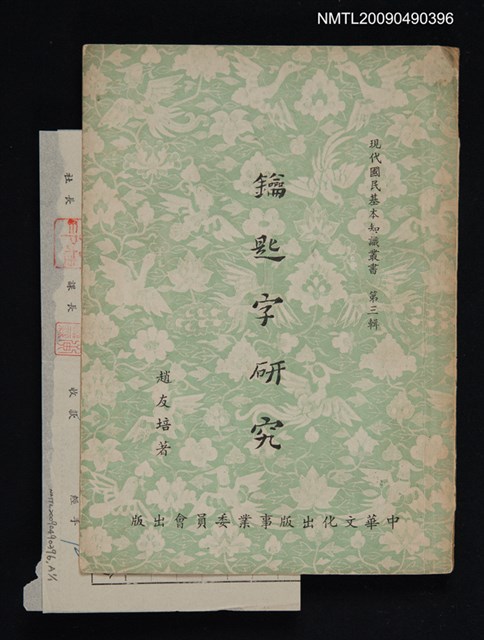 NMTL20090490396
現代國民基本知識叢書　第三輯
鑰匙字研究
趙友培著
中華文化出版事業委員會出版
社長
課長
收款
經手
NMTL20090490396, A1/1